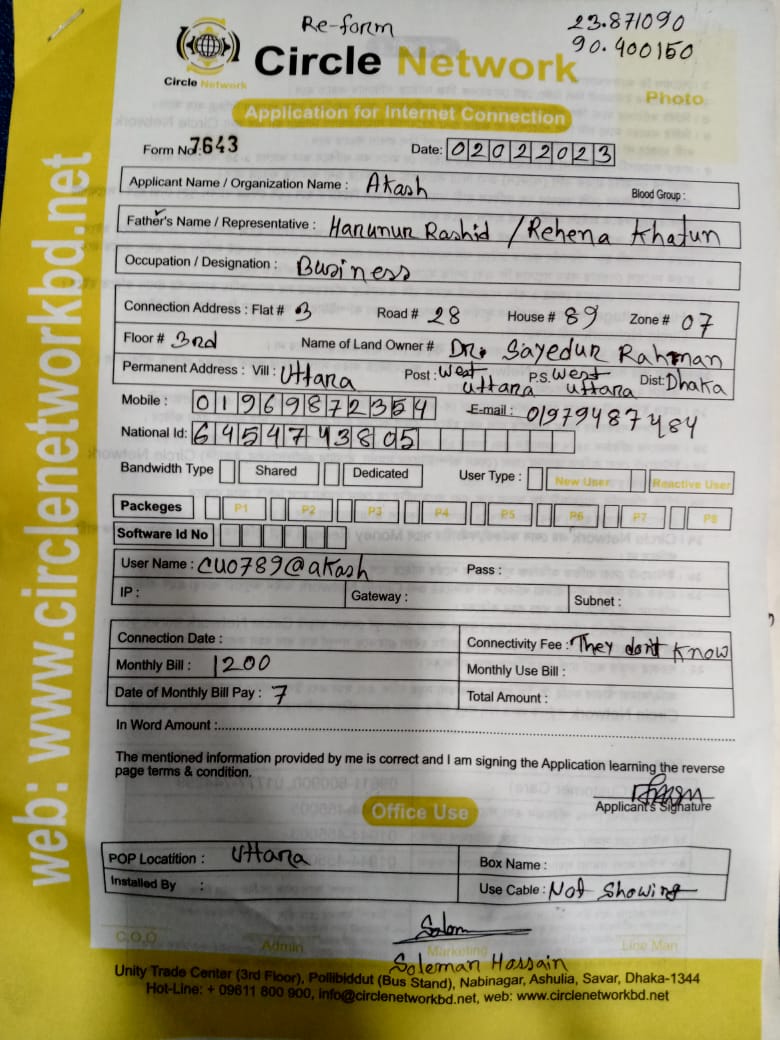 Re-form
23.871090
90.400150
Circle Network
Circle Network
Photo
Application for Internet Connection
Form No: 7643 Date: 02022023
Applicant Name / Organization Name : Akash Blood Group :
Father's Name / Representative : Harunur Rashid / Rehena Khatun
Occupation / Designation : Business
Connection Address : Flat # 3 Road # 28 House # 89 Zone # 07
Floor # 3rd Name of Land Owner # Dr. Sayedur Rahman
Permanent Address : Vill : Uttara Post : West uttara P.S. West uttara Dist: Dhaka
Mobile : 01969872354 E-mail : 01979487484
National Id: 6454743805
Bandwidth Type Shared Dedicated User Type : New User Reactive User
Packeges P1 P2 P3 P4 P5 P6 P7 P8
Software Id No
User Name : CUO789@akash Pass :
IP : Gateway : Subnet :
Connection Date : Connectivity Fee : They don't know
Monthly Bill : 1200 Monthly Use Bill :
Date of Monthly Bill Pay : 7 Total Amount :
In Word Amount :
The mentioned information provided by me is correct and I am signing the Application learning the reverse
page terms & condition.
Applicant's Signature
Office Use
POP Locatition : Uttara Box Name :
Installed By : Use Cable : Not Showing
C.O.O Admin Marketing Line Man
Soleman Hossain
Unity Trade Center (3rd Floor), Pollibiddut (Bus Stand), Nabinagar, Ashulia, Savar, Dhaka-1344
Hot-Line: + 09611 800 900, info@circlenetworkbd.net, web: www.circlenetworkbd.net
web: www.circlenetworkbd.net